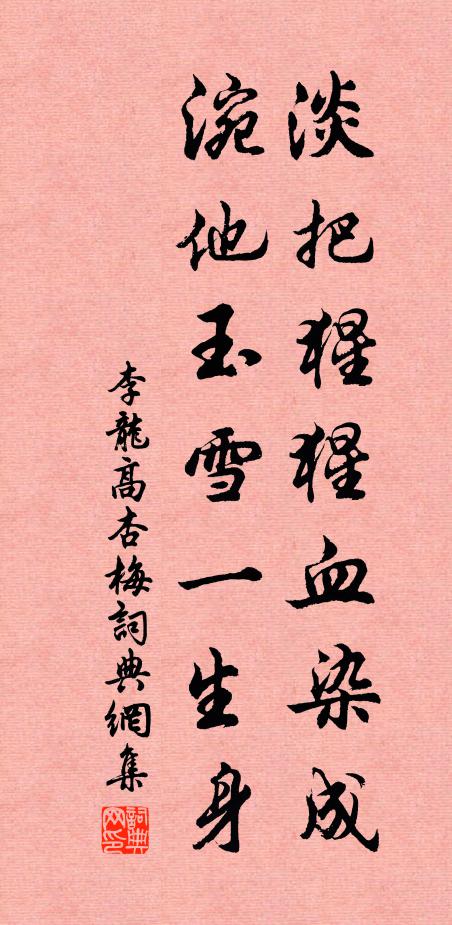 淡把猩猩血染成
涴他玉雪一生身
李龍高杏梅詞典網集
詞典
网印